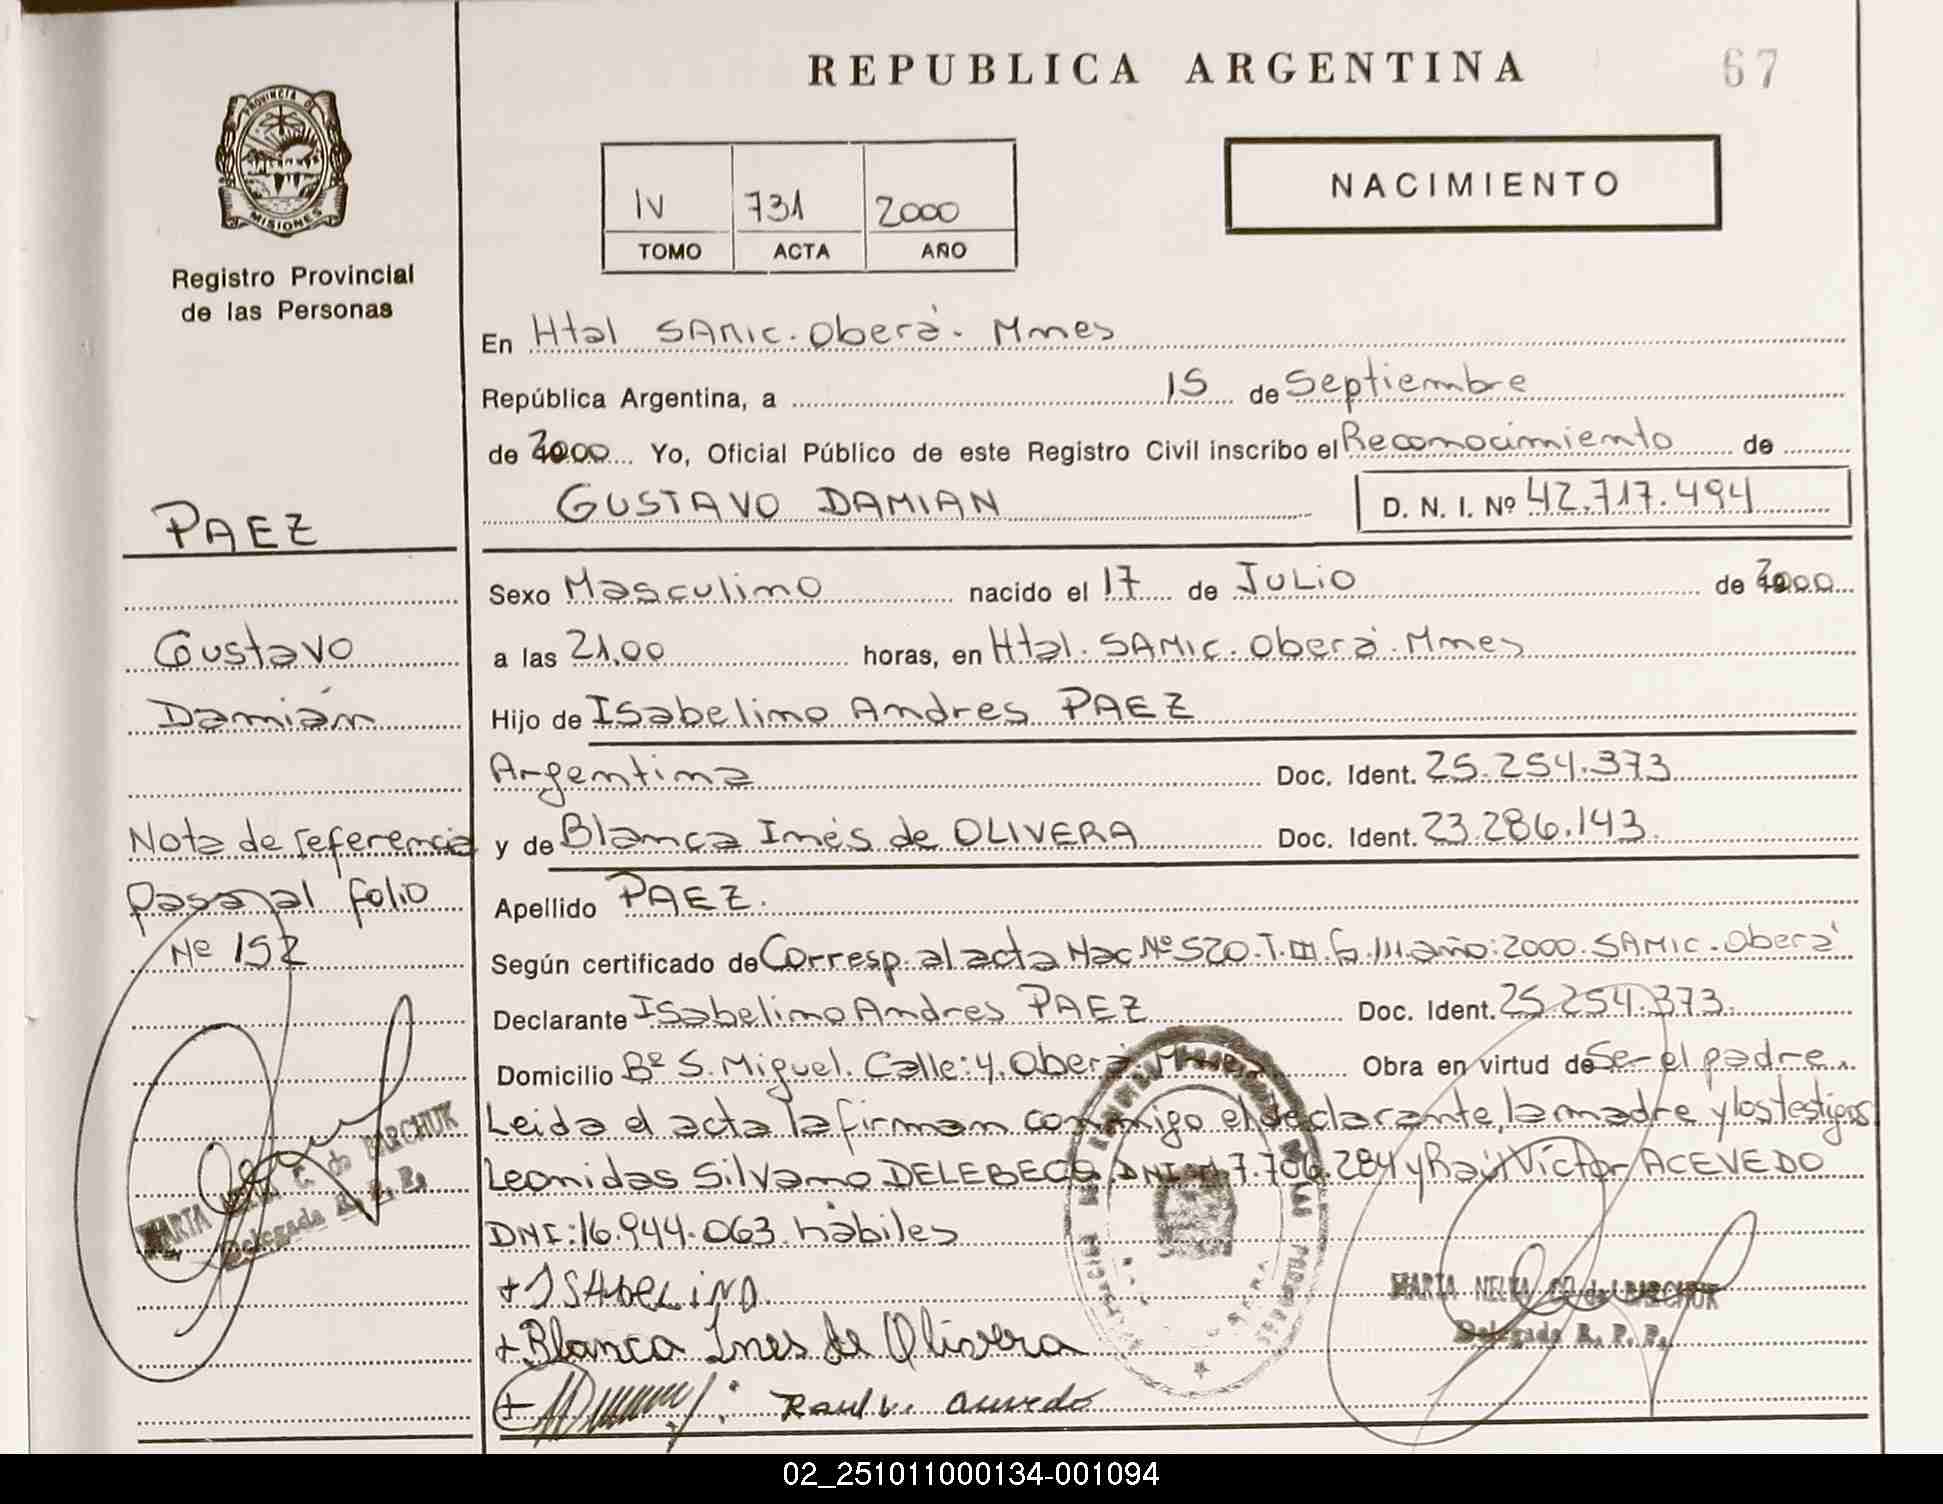 REPUBLICA ARGENTINA
67
PROVINCIA DE
MISIONES
Registro Provincial
de las Personas
IV 731 2000
TOMO ACTA AÑO
NACIMIENTO
En Htal SAMic. Oberá. Mnes
República Argentina, a 15 de Septiembre
de 2000 Yo, Oficial Público de este Registro Civil inscribo el Reconocimiento de
GUSTAVO DAMIAN D. N. I. Nº 42.717.494
PAEZ
Sexo Masculino nacido el 17 de JULIO de 2000
Gustavo
a las 21,00 horas, en Htal. SAMic. Oberá. Mnes
Damián
Hijo de Isabelino Andres PAEZ
Argentina Doc. Ident. 25.254.373
Nota de referencia
y de Blanca Inés de OLIVERA Doc. Ident. 23.286.143.
pasa al folio
Apellido PAEZ.
Nº 152
Según certificado de Corresp. al acta Nac Nº 520. T. III. año: 2000. SAMIC. Oberá
Declarante Isabelino Andres PAEZ Doc. Ident. 25.254.373.
Domicilio Bº S. Miguel. Calle: 4. Oberá Mnes Obra en virtud de Ser el padre.
Leida el acta la firman conmigo el declarante, la madre y los testigos
Leonidas Silvano DELEBECQ DNI: 7.706.284 y Raúl Víctor ACEVEDO
DNI: 16.944.063. hábiles
+ ISAbELiNO
+ Blanca Ines de Olivera
Raul V. Acevedo
MARIA C. de BARCHUK
Delegada R. P. P.
MARIA NELIDA C. de BARCHUK
Delegada R. P. P.
02_251011000134-001094